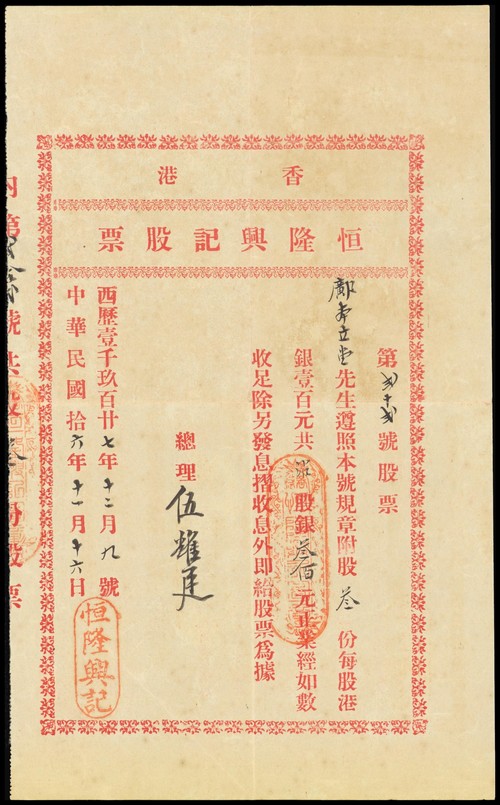 香港
恒隆興記股票
第 號股票
鄺本立堂先生遵照本號規章附股叁份每股港
銀壹百元共 股銀叁佰元正業經如數
收足除另發息摺收息外即給股票為據
總理 伍耀廷
西歷壹千玖百廿七年十二月九號
中華民國拾六年十一月十六日
恒隆興記
內第 號共 股票